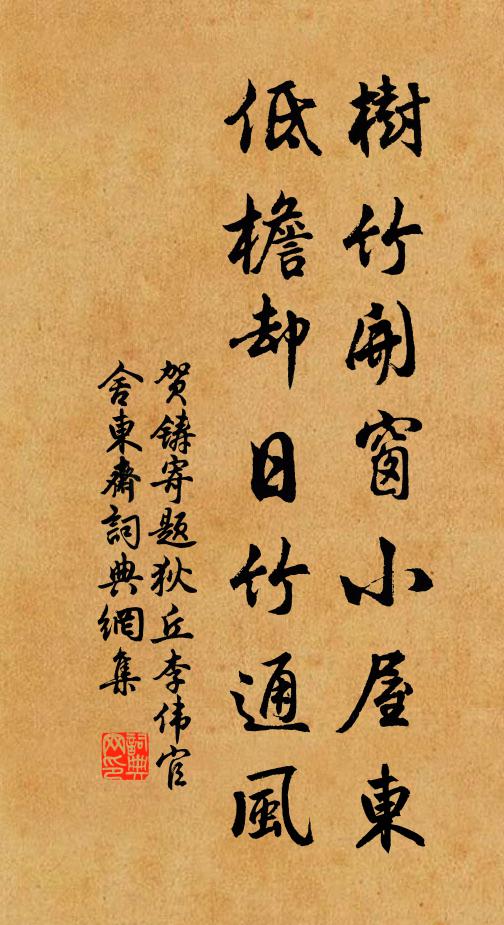 樹竹開窗小屋東
低檐却日竹通風
贺鑄寄题狄丘李伟官
舍東齋詞典網集
詞典
网印